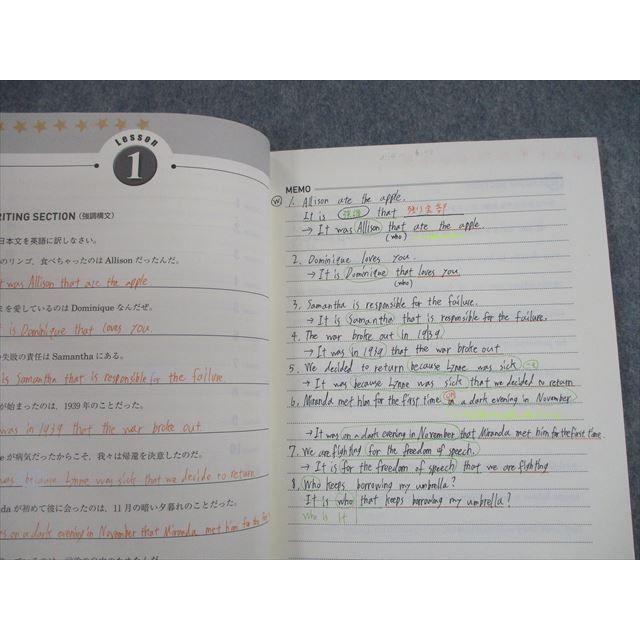 Lesson
1
RITING SECTION（強調構文）
日本文を英語に訳しなさい。
のリンゴ、食べちゃったのは Allison だったんだ。
was Allison that ate the apple
まを愛しているのは Dominique なんだぜ。
is Dominique that loves you.
の失敗の責任は Samantha にある。
is Samantha that is responsible for the failure.
が始まったのは、1939 年のことだった。
was in 1939 that the war broke out
e が病気だったからこそ、我々は帰還を決意したのだ。
was because Lynne was sick that we decided to return
nda が初めて彼に会ったのは、11 月の暗い夕暮れのことだった。
on a dark evening in November that Miranda met him for the first
MEMO
W 1. Allison ate the apple.
It is 強調 that 残り全部
→ It was Allison that ate the apple.
(who)
2. Dominique loves you.
→ It is Dominique that loves you.
(who)
3. Samantha is responsible for the failure.
→ It is Samantha that is responsible for the failure.
4. The war broke out in 1939
→ It was in 1939 that the war broke out
5. We decided to return because Lynne was sick
→ It was because Lynne was sick that we decided to return
6. Miranda met him for the first time on a dark evening in November
→ It was on a dark evening in November that Miranda met him for the first time.
7. We are fighting for the freedom of speech.
→ It is for the freedom of speech that we are fighting
8. Who keeps borrowing my umbrella?
It is who that keeps borrowing my umbrella?
who is it